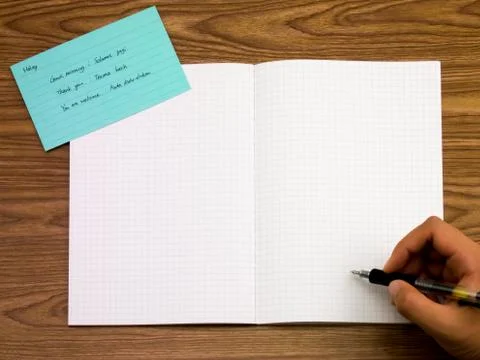 Malay
Good morning : Selamat pagi
Thank you : Terima kasih
You are welcome :